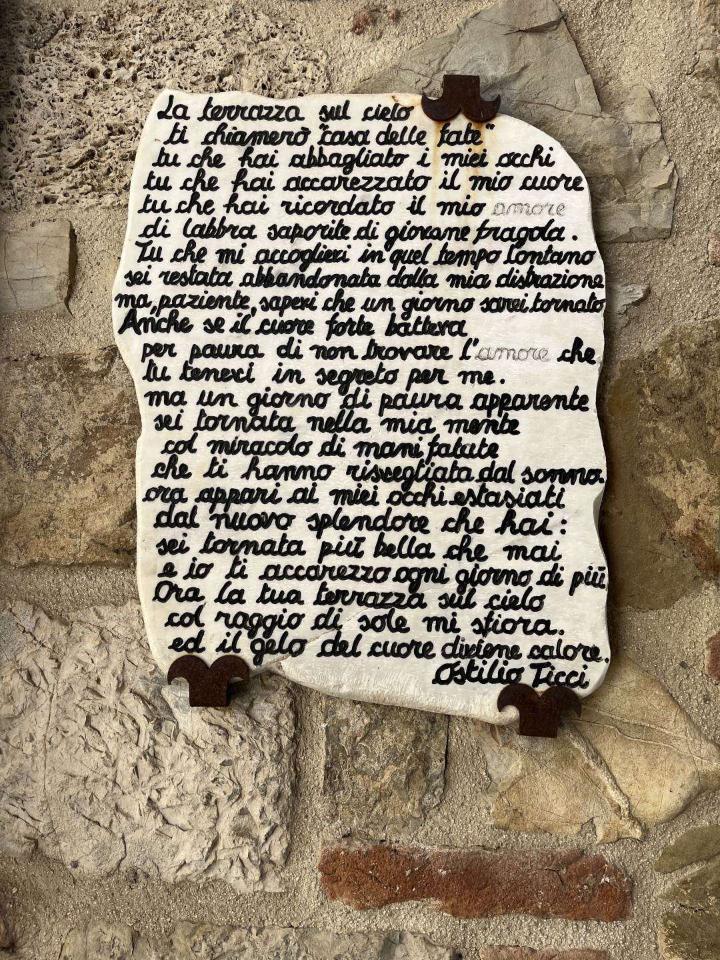 La terrazza sul cielo
ti chiamerò "casa delle fate"
tu che hai abbagliato i miei occhi
tu che hai accarezzato il mio cuore
tu che hai ricordato il mio amore
di labbra saporite di giovane fragola.
Tu che mi accoglievi in quel tempo lontano
sei restata abbandonata dalla mia distrazione
ma, paziente, sapevi che un giorno sarei tornato
Anche se il cuore forte batteva
per paura di non trovare l'amore che
tu tenevi in segreto per me.
ma un giorno di paura apparente
sei tornata nella mia mente
col miracolo di mani fatate
che ti hanno risvegliata dal sonno.
ora appari ai miei occhi estasiati
dal nuovo splendore che hai:
sei tornata più bella che mai
e io ti accarezzo ogni giorno di più
Ora la tua terrazza sul cielo
col raggio di sole mi sfiora.
ed il gelo del cuore diviene calore.
Ostilio Ticci